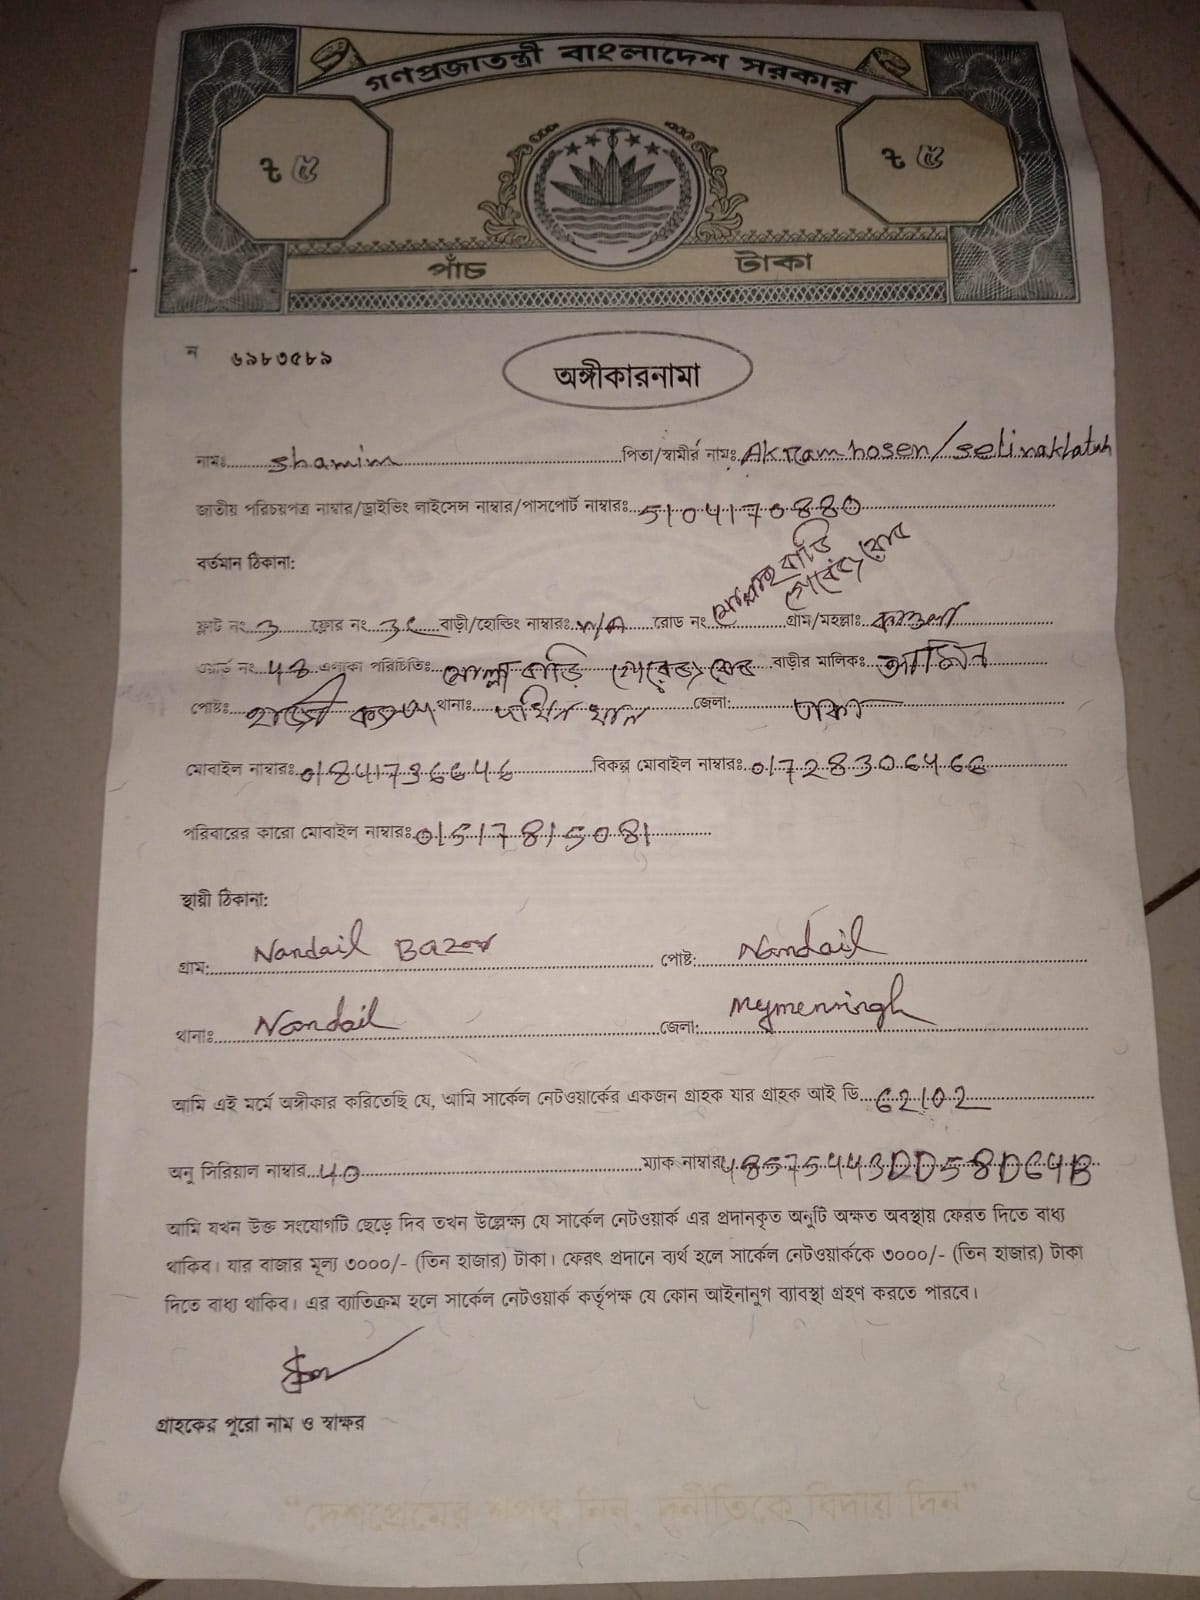 গণপ্রজাতন্ত্রী বাংলাদেশ সরকার
৳ ৫ ৳ ৫
পাঁচ টাকা
ন ৬৯৮৩৫৮৯
অঙ্গীকারনামা
নামঃ shamim পিতা/স্বামীর নামঃ Akram hosen/
জাতীয় পরিচয়পত্র নাম্বার/ড্রাইভিং লাইসেন্স নাম্বার/পাসপোর্ট নাম্বারঃ 5104170880
বর্তমান ঠিকানা:
ফ্লাট নং 3 ফ্লোর নং বাড়ী/হোল্ডিং নাম্বারঃ N/A রোড নং গ্রাম/মহল্লাঃ কাওলা
ওয়ার্ড নং এলাকা পরিচিতিঃ মোল্লা বাড়ি রোড বাড়ীর মালিকঃ
পোষ্টঃ থানাঃ দক্ষিন খান জেলা: ঢাকা
মোবাইল নাম্বারঃ 01841736646 বিকল্প মোবাইল নাম্বারঃ 01728306466
পরিবারের কারো মোবাইল নাম্বারঃ 01517815081
স্থায়ী ঠিকানা:
গ্রাম: Nandail Bazar পোষ্ট: Nandail
থানাঃ Nandail জেলা: Mymensingh
আমি এই মর্মে অঙ্গীকার করিতেছি যে, আমি সার্কেল নেটওয়ার্কের একজন গ্রাহক যার গ্রাহক আই ডি 62102
অনু সিরিয়াল নাম্বার 40 ম্যাক নাম্বার 48575443DD58D64B
আমি যখন উক্ত সংযোগটি ছেড়ে দিব তখন উল্লেক্ষ্য যে সার্কেল নেটওয়ার্ক এর প্রদানকৃত অনুটি অক্ষত অবস্থায় ফেরত দিতে বাধ্য
থাকিব। যার বাজার মূল্য ৩০০০/- (তিন হাজার) টাকা। ফেরৎ প্রদানে ব্যর্থ হলে সার্কেল নেটওয়ার্ককে ৩০০০/- (তিন হাজার) টাকা
দিতে বাধ্য থাকিব। এর ব্যাতিক্রম হলে সার্কেল নেটওয়ার্ক কর্তৃপক্ষ যে কোন আইনানুগ ব্যাবস্থা গ্রহণ করতে পারবে।
গ্রাহকের পুরো নাম ও স্বাক্ষর
“দেশপ্রেমের শপথ নিন, দুর্নীতিকে বিদায় দিন”